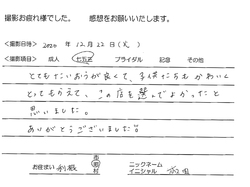 撮影お疲れ様でした。 感想をお願いいたします。
<撮影日時> 2020 年 12月 22日 (火)
<撮影項目> 成人 七五三 ブライダル 記念 その他
とてもたいおうが良くて、子供たちもかわいく
とってもらえて、この店を選んでよかったと
思いました。
ありがとうございました。
お住まい 市 郡 村 ニックネーム
イニシャル